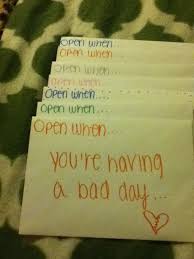 Open when...
Open when...
Open when...
Open when...
Open when...
Open when...
Open when...
you're having
a bad day...